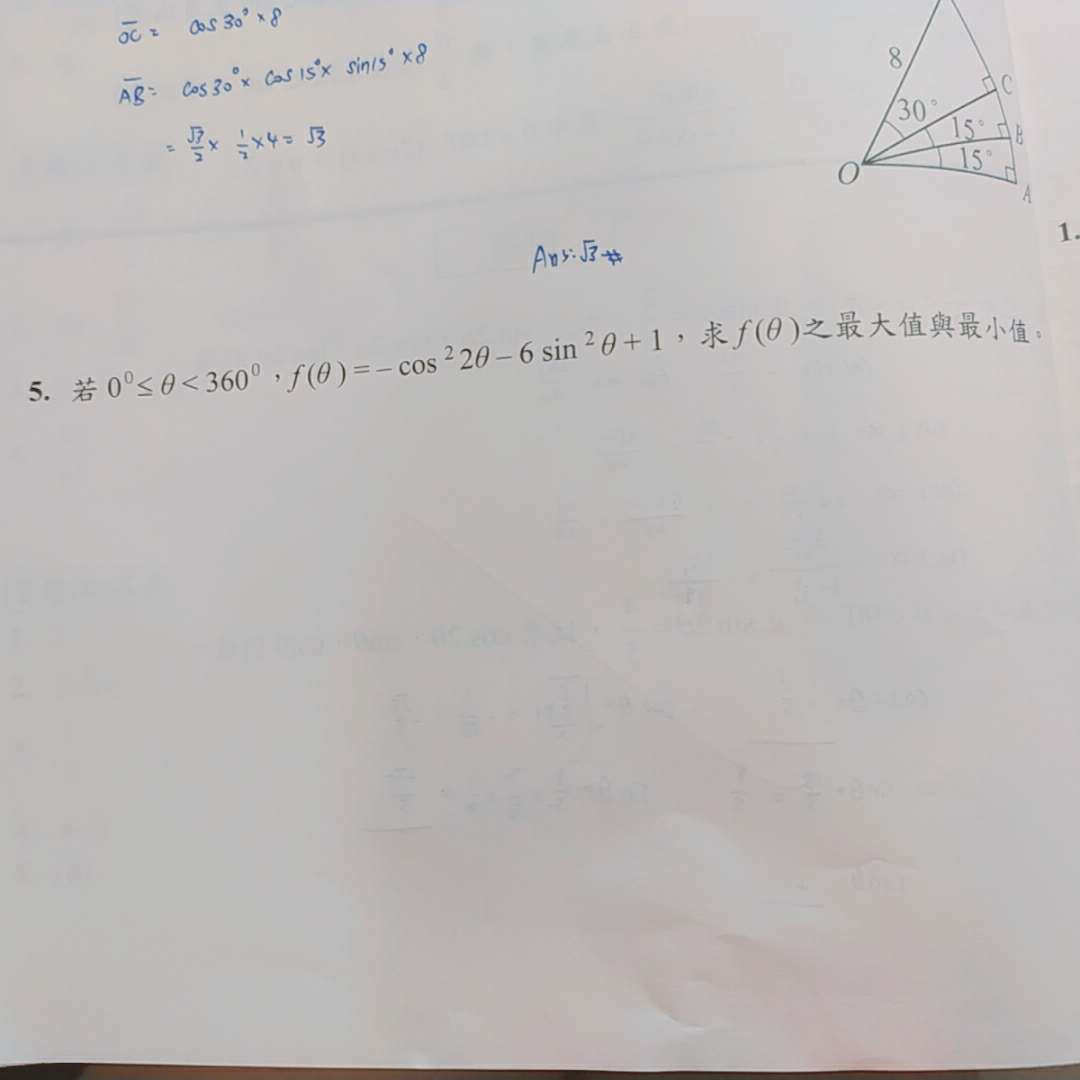 OC = cos 30° × 8
AB = cos 30° × cos 15° × sin 15° × 8
= √3/2 × 1/2 × 4 = √3
8
30°
C
15°
B
15°
O
A
Ans: √3 #
1.
5. 若 0⁰ ≤ θ < 360⁰，f(θ) = – cos ² 2θ – 6 sin ² θ + 1，求 f(θ)之最大值與最小值。